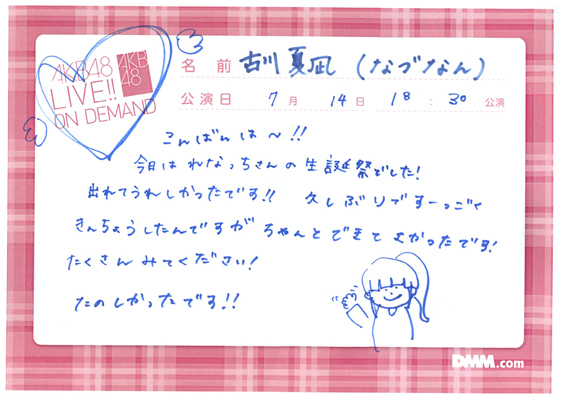 AKB48
LIVE!!
ON DEMAND
AKB
48
名 前 古川夏凪 (なづなん)
公演日 7月 14日 18:30 公演
こんばんは〜!!
今日は れなっちさんの生誕祭でした!
出れてうれしかったです!! 久しぶりですーっごく
きんちょうしたんですが ちゃんとできて よかったです!
たくさん みてください!
たのしかったです!!
DMM.com